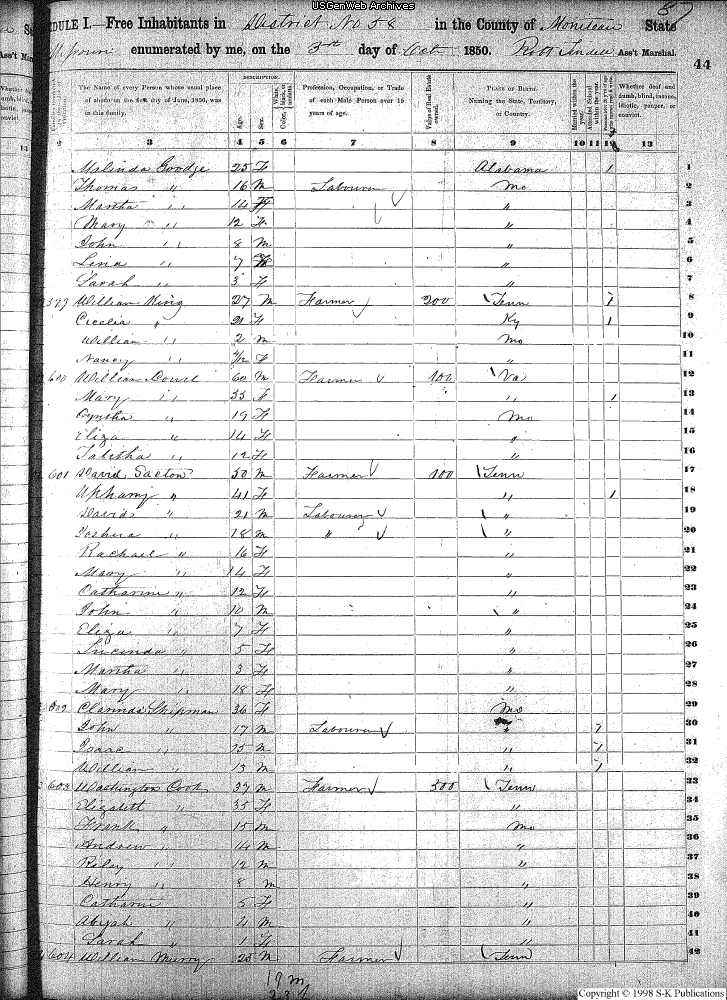 USGenWeb Archives
57
DULE I.—Free Inhabitants in District No 58 in the County of Moniteau State
enumerated by me, on the 3rd day of Oct 1850. Robt Ass't Marshal.
44
The Name of every Person whose usual place of abode on the first day of June, 1850, was in this family.
DESCRIPTION.
Age.
Sex.
White, black, or mulatto.
Color,
Profession, Occupation, or Trade of each Male Person over 15 years of age.
Value of Real Estate owned.
PLACE OF BIRTH. Naming the State, Territory, or Country.
Married within the year.
Attended School within the year.
Whether deaf and dumb, blind, insane, idiotic, pauper, or convict.
3 4 5 6 7 8 9 10 11 12 13
Malinda Goodge 25 F Alabama 1 1
Thomas " 16 M Labourer Mo 2
Martha " 14 F " 3
Mary " 12 F " 4
John " 8 M " 5
" 7 F " 6
Sarah " 3 F " 7
599 William King 27 M Farmer 200 Tenn 1 8
Cecelia " 21 F Ky 1 9
William " 2 M Mo 10
Nancy " F " 11
600 William 60 M Farmer 100 Va 12
Mary " 55 F " 1 13
Cyntha " 19 F Mo 14
Eliza " 14 F " 15
Tabitha " 12 F " 16
601 David Sacton 50 M Farmer 100 Tenn 17
" 41 F " 1 18
David " 21 M Labourer " 19
Joshua " 18 M " " 20
Rachael " 16 F " 21
Mary " 14 F " 22
Catharine " 12 F " 23
John " 10 M " 24
Eliza " 7 F " 25
Lucinda " 5 F " 26
Martha " 3 F " 27
Mary " 18 F " 28
602 Clarinda Shipman 36 F Mo 29
John " 17 M Labourer " 1 30
Isaac " 15 M " 1 31
William " 13 M " 1 32
603 Washington Cook 37 M Farmer 500 Tenn 33
Elizabeth " 35 F " 34
Frank " 15 M Mo 35
Andrew " 14 M " 36
Riley " 12 M " 37
Henry " 8 M " 38
Catharine 5 F " 39
Abijah " 4 M " 40
Sarah " 1 F " 41
604 William Murry 25 M Farmer Tenn 42
19 M
23 F
Copyright © 1998 S-K Publications